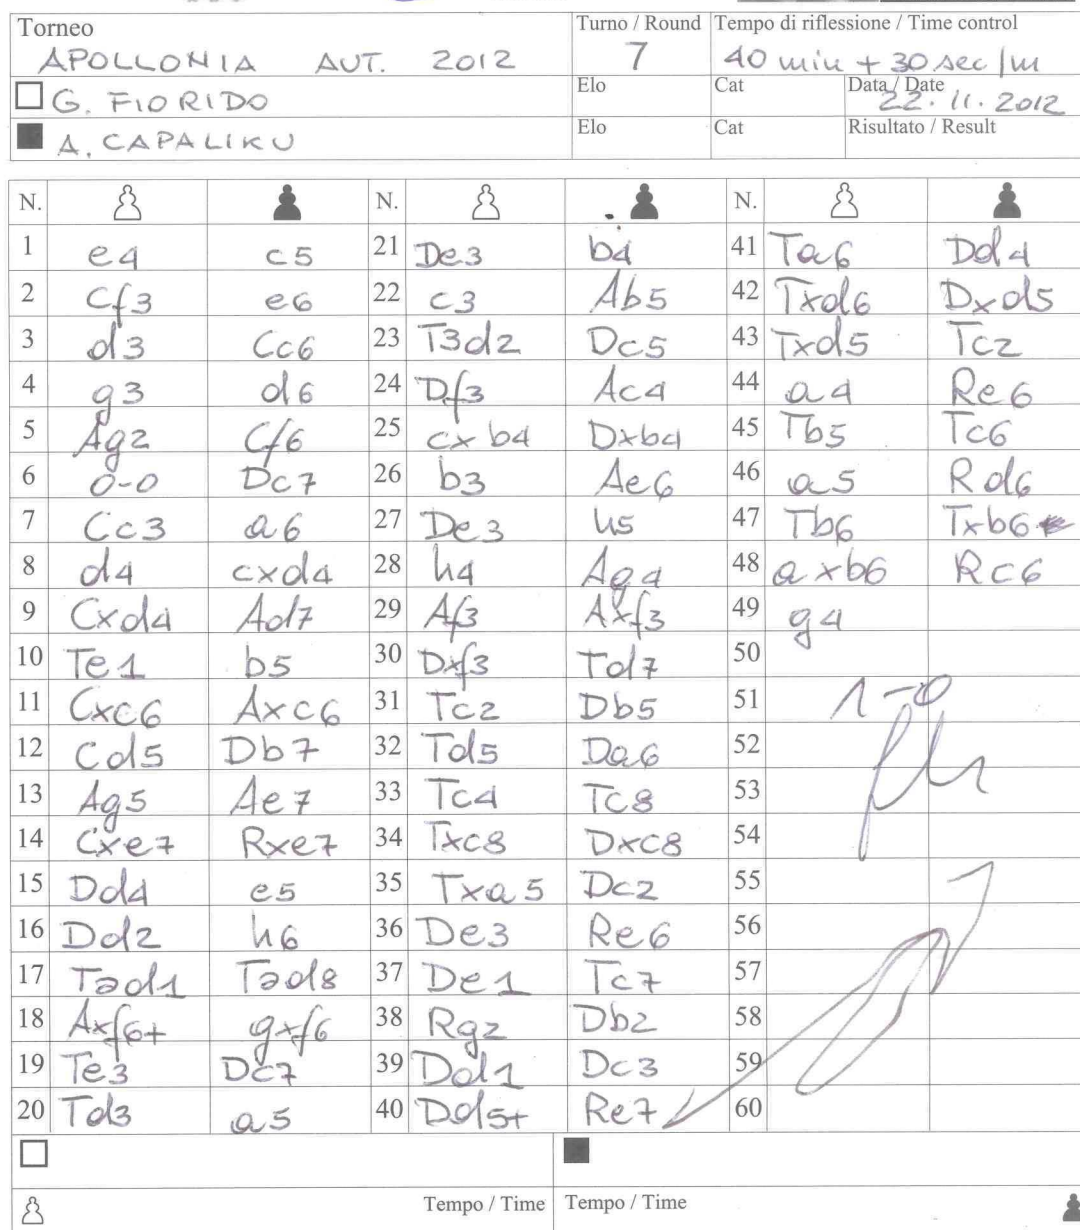 Torneo Turno / Round Tempo di riflessione / Time control
APOLLONIA AUT. 2012 7 40 min + 30 sec/m
G. FIORIDO Elo Cat Data / Date 22.11.2012
A. CAPALIKU Elo Cat Risultato / Result
N. N. N.
1 e4 c5 21 De3 b4 41 Ta6 Dd4
2 Cf3 e6 22 c3 Ab5 42 Txd6 Dxd5
3 d3 Cc6 23 T3d2 Dc5 43 Txd5 Tc2
4 g3 d6 24 Df3 Ac4 44 a4 Re6
5 Ag2 Cf6 25 cxb4 Dxb4 45 Tb5 Tc6
6 0-0 Dc7 26 b3 Ae6 46 a5 Rd6
7 Cc3 a6 27 De3 h5 47 Tb6 Txb6
8 d4 cxd4 28 h4 Ag4 48 axb6 Rc6
9 Cxd4 Ad7 29 Af3 Axf3 49 g4
10 Te1 b5 30 Dxf3 Td7 50
11 Cxc6 Axc6 31 Tc2 Db5 51 1-0
12 Cd5 Db7 32 Td5 Da6 52
13 Ag5 Ae7 33 Tc4 Tc8 53
14 Cxe7 Rxe7 34 Txc8 Dxc8 54
15 Dd4 e5 35 Txa5 Dc2 55
16 Dd2 h6 36 De3 Re6 56
17 Tad1 Tad8 37 De1 Tc7 57
18 Axf6+ gxf6 38 Rg2 Db2 58
19 Te3 Dc7 39 Dd1 Dc3 59
20 Td3 a5 40 Dd5+ Re7 60
Tempo / Time Tempo / Time